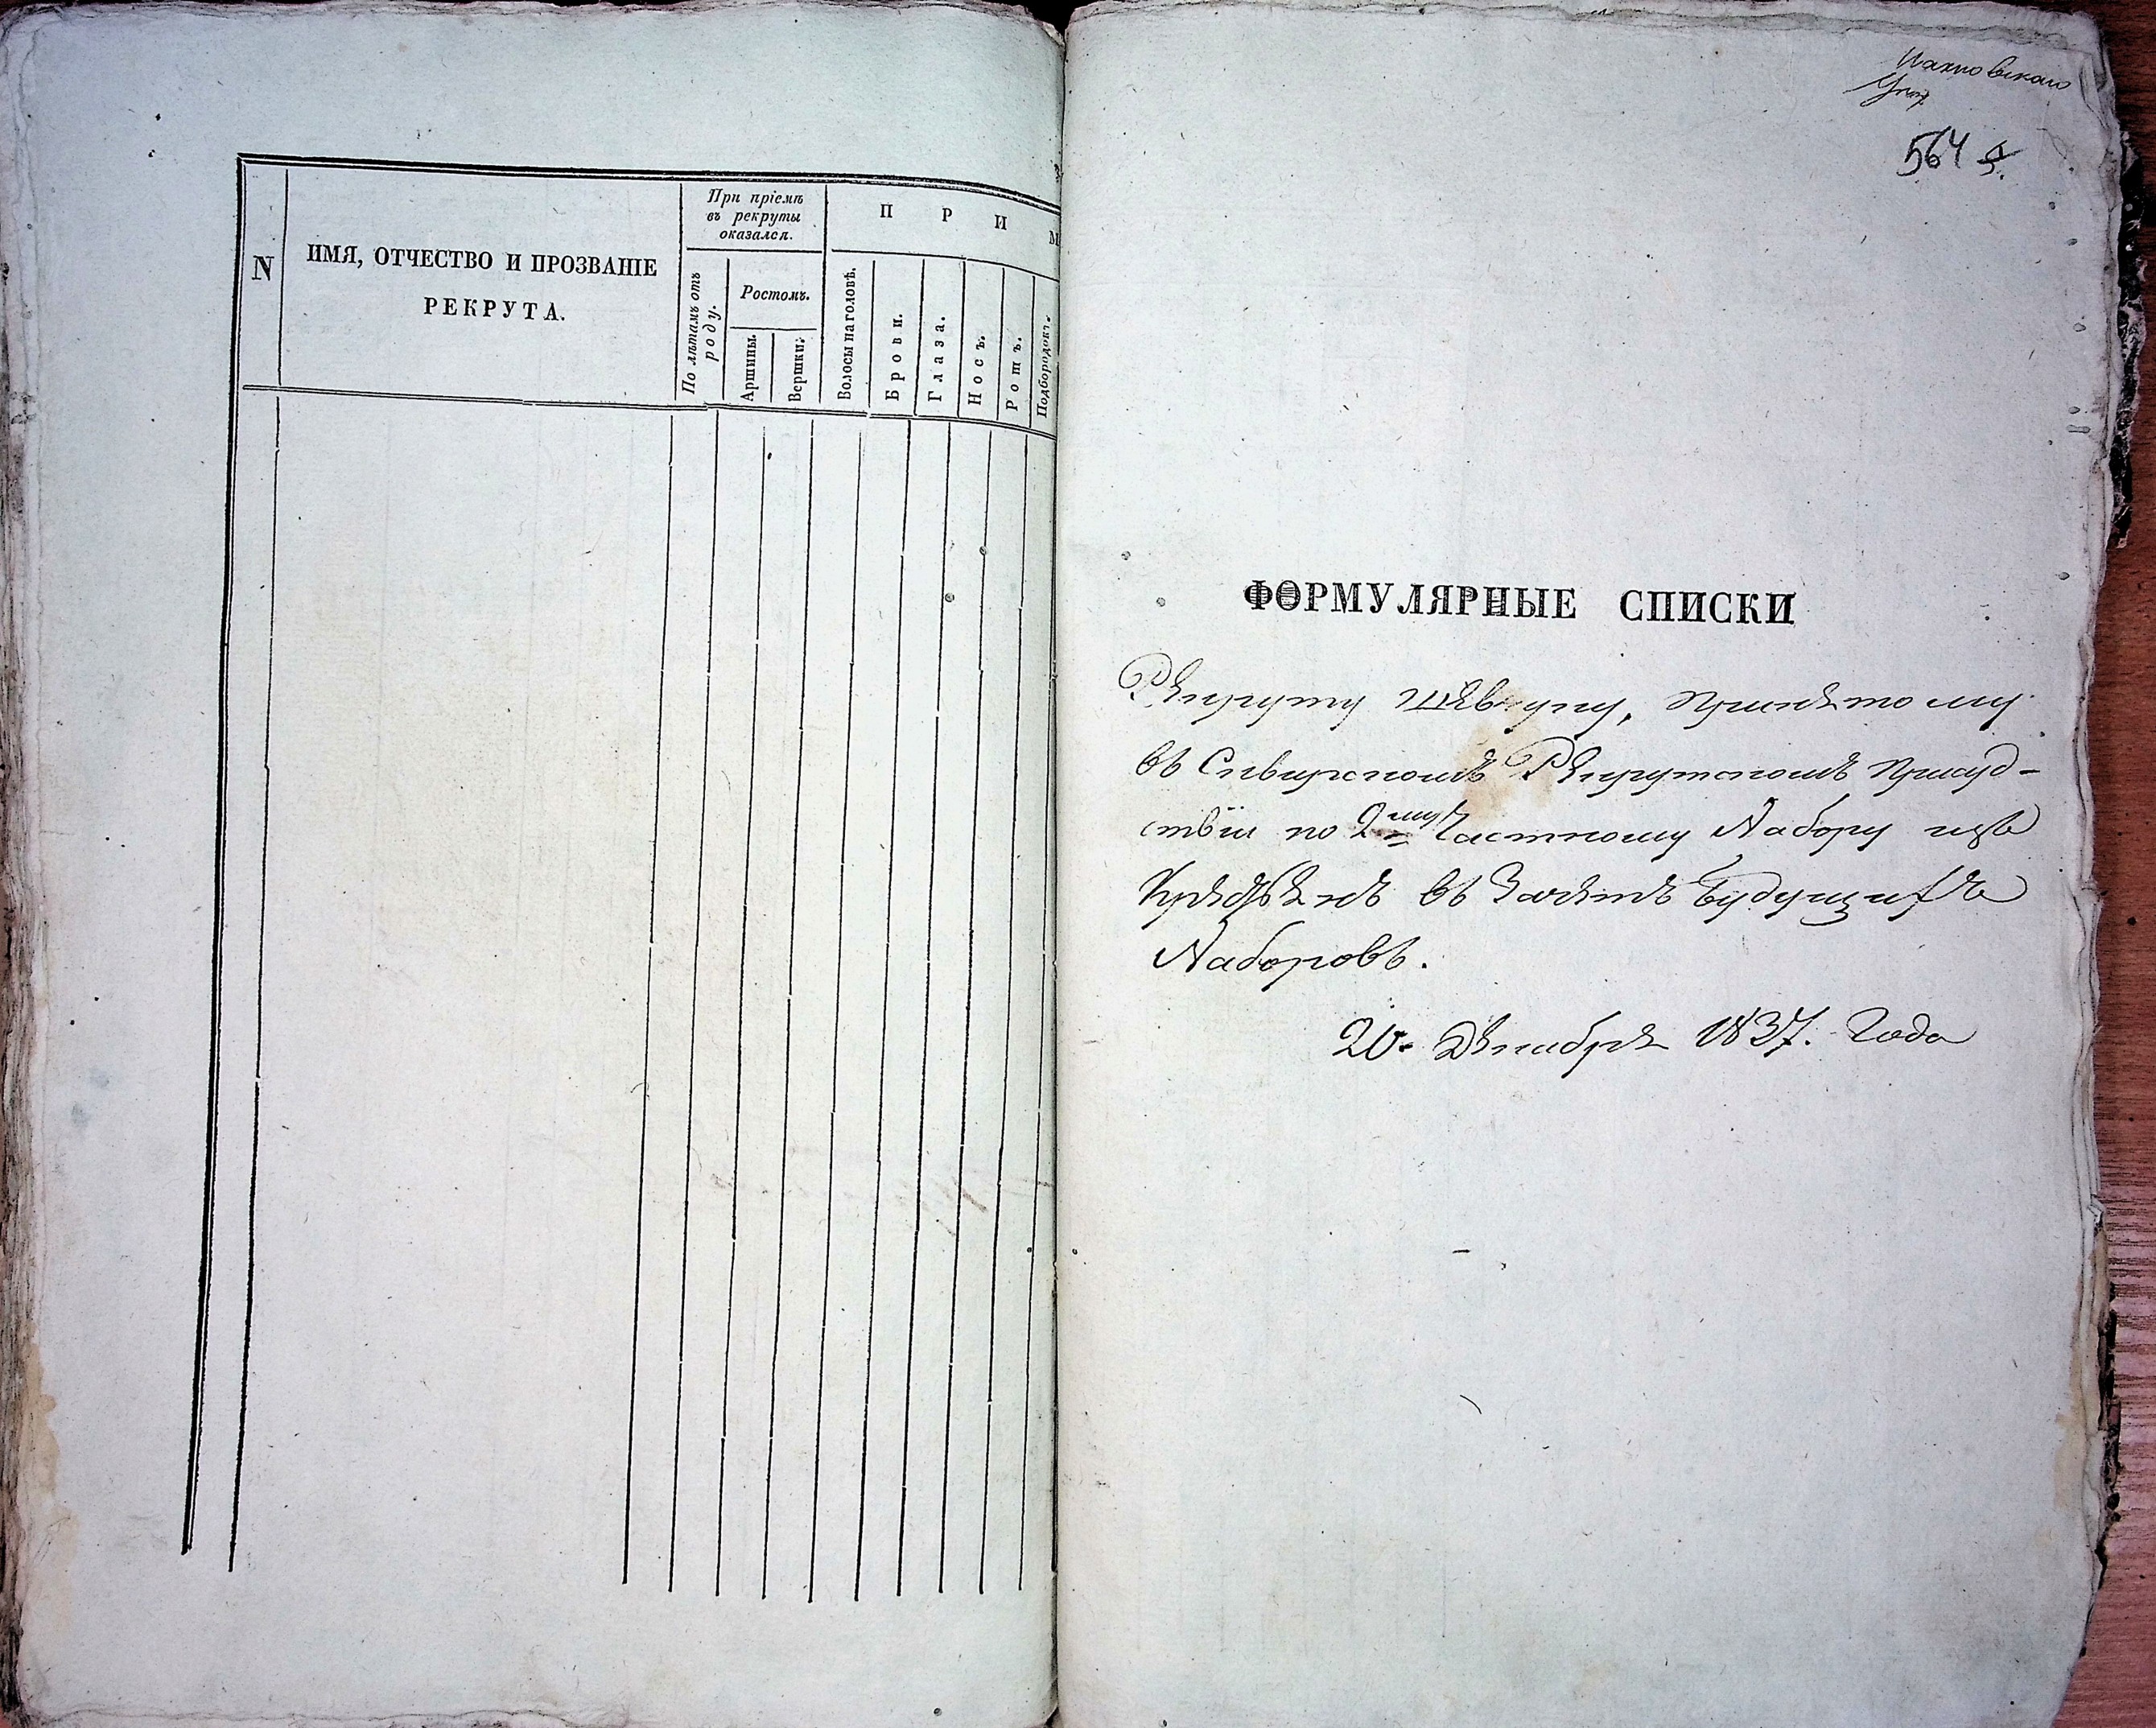 N
ИМЯ, ОТЧЕСТВО И ПРОЗВАНІЕ
РЕКРУТА.
При пріемѣ
въ рекруты
оказался.
По лѣтамъ отъ
роду.
Ростомъ.
Аршины.
Вершки.
П Р И М
Волосы на головѣ.
Брови.
Глаза.
Носъ.
Ротъ.
Подбородокъ.
564
ФОРМУЛЯРНЫЕ СПИСКИ
Рекруту Принятому
въ Сквирскомъ Рекрутскомъ Присуд-
ствіи по 2му Частному Набору изъ
въ Зачетъ Будущихъ
Наборовъ.
20. Декабря 1837. Года